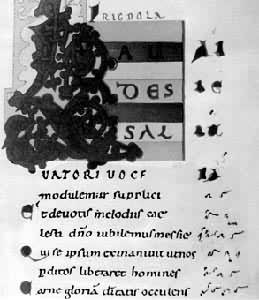 FRIGDOLA
LAU
DES
SAL
UATORI UOCE
modulemur supplici
Et deuotis melodiis cae
lesti dño iubilemus messie
Qui se ipsum exinaniuit ut nos
pditos liberaret homines
Carne gloriā deitatis occulens